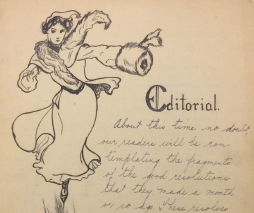 Editorial.
About this time no doubt
our readers will be con-
templating the fragments
of the good resolutions
that they made a month
or so ago. These resolves